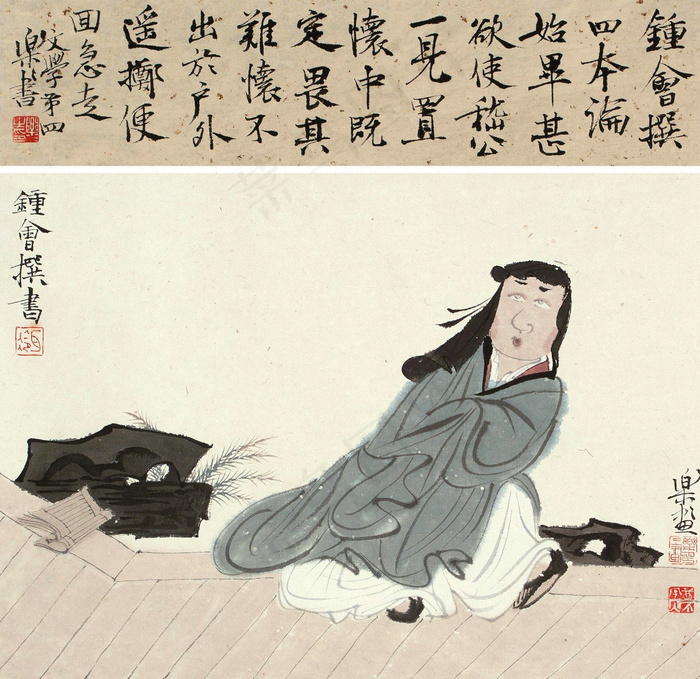 鍾會撰
四本論
始畢甚
欲使嵇公
一見置
懷中既
定畏其
難懷不
出於户外
遥擲便
回急走
文學第四
書
鍾會撰書